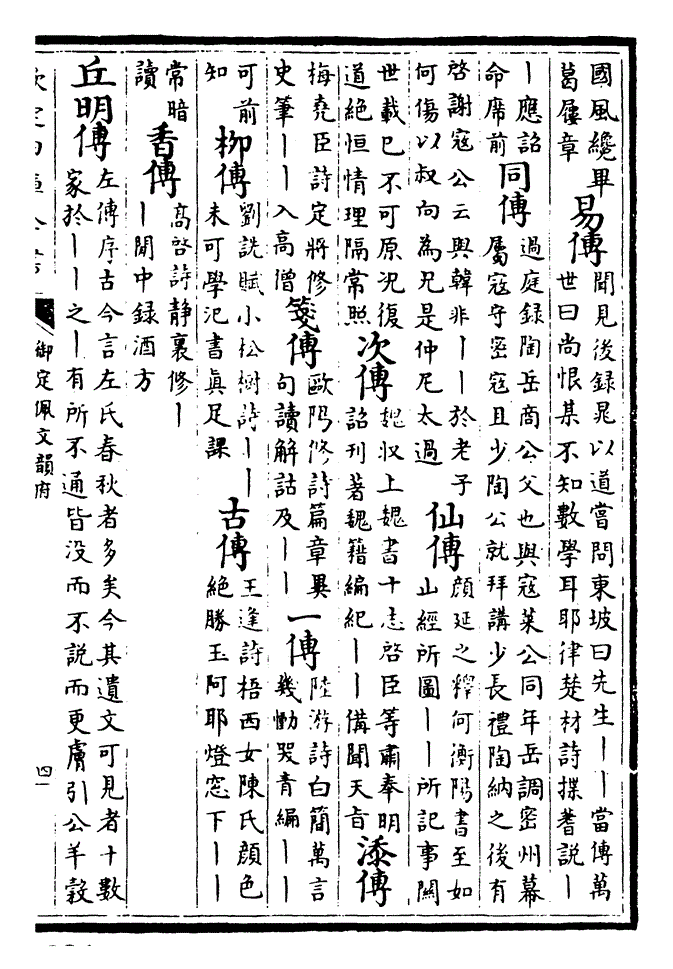 國風纔畢
葛屨章
易傳
聞見後録晁以道嘗問東坡曰先生丨丨當傳萬
世曰尚恨某不知數學耳耶律楚材詩揲蓍説丨
丨應詔
命席前
同傳
過庭録陶岳商公父也與寇萊公同年岳調密州幕
屬寇守密寇且少陶公就拜講少長禮陶納之後有
啓謝寇公云與韓非丨丨於老子
何傷以叔向為兄是仲尼太過
仙傳
顔延之釋何衡陽書至如
山經所圖丨丨所記事闗
世載已不可原況復
道絶恒情理隔常照
次傳
魏收上魏書十志啓臣等肅奉明
詔刊著魏籍編紀丨丨備聞天旨
添傳
梅堯臣詩定將修
史筆丨丨入高僧
箋傳
歐陽修詩篇章異
句讀解詁及丨丨
一傳
陸游詩白簡萬言
幾慟哭青編丨丨
可前
知
柳傳
劉詵賦小松樹詩丨丨
未可學氾書真足課
古傳
王逢詩梧西女陳氏顔色
絶勝玉阿耶燈窓下丨丨
常暗
讀
香傳
髙啓詩静裏修丨
丨閒中録酒方
丘明傳
左傳序古今言左氏春秋者多矣今其遺文可見者十數
家於丨丨之丨有所不通皆没而不説而更膚引公羊穀
欽定四庫全書
御定佩文韻府
四